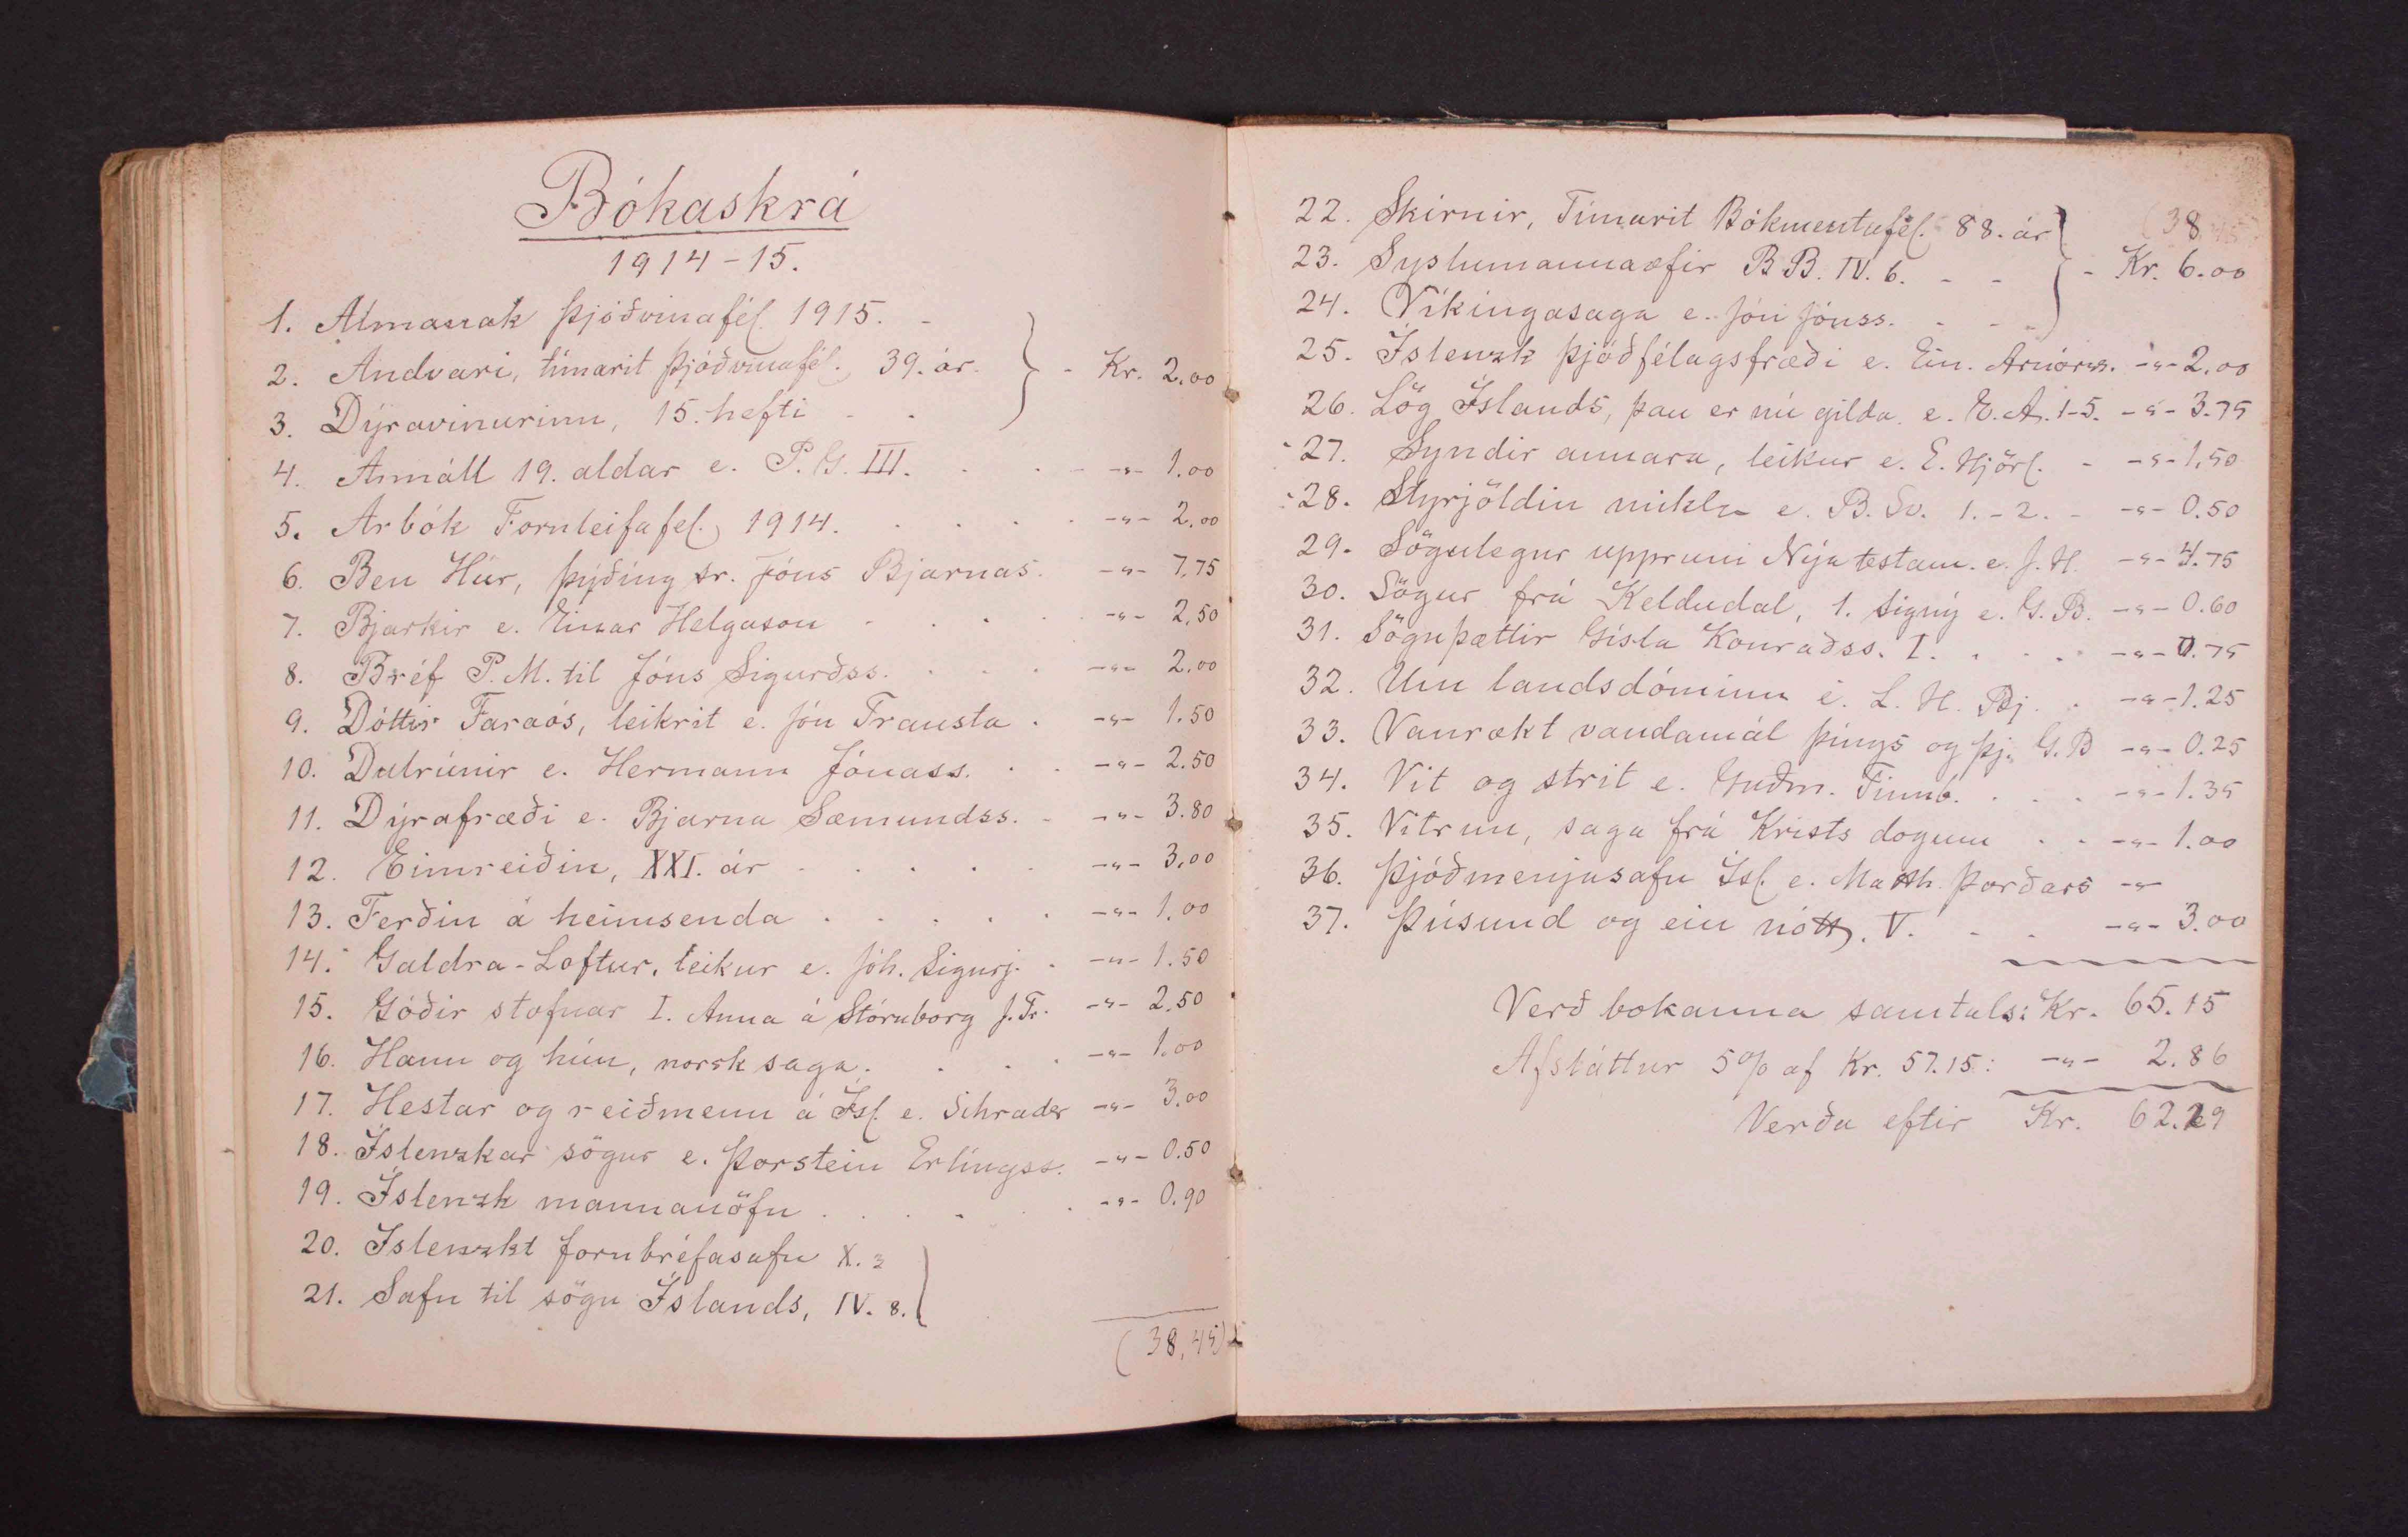 Bókaskrá
1914-15.
1. Almanak Þjóðvinafél. 1915. -
2. Andvari, tímarit Þjóðvinafél. 39. ár. } - Kr. 2.00
3. Dýravinurinn, 15. hefti - -
4. Annáll 19. aldar e. P. G. III. . . - -„- 1.00
5. Arbók Fornleifafél. 1914. . . . . -„- 2.00
6. Ben Húr, þýðing sr. Jóns Bjarnas. -„- 7.75
7. Bjarkir e. Einar Helgason - . . . . -„- 2,50
8. Bréf P. M. til Jóns Sigurðss. . . . -„- 2.00
9. Dóttir Faraós, leikrit e. Jón Trausta . -„- 1.50
10. Dulrúnir e. Hermann Jónass. . . -„- 2.50
11. Dýrafræði e. Bjarna Sæmundss. - -„- 3.80
12. Eimreiðin, XXI. ár . . . . . -„- 3.00
13. Ferðin á heimsenda . . . . . -„- 1.00
14. Galdra-Loftur, leikur e. Jóh. Sigurj. . -„- 1.50
15. Góðir stofnar I. Anna á Stóruborg J. Tr. -„- 2.50
16. Hann og hún, norsk saga. . . . -„- 1.00
17. Hestar og reiðmenn á Ísl. e. Schrader -„- 3.00
18. Íslenzkar sögur e. Þorstein Erlingss. -„- 0.50
19. Íslenzk mannanöfn . . . - . . -„- 0.90
20. Íslenzkt fornbréfasafn X. 3
21. Safn til sögu Íslands, IV. 8. }
(38,45)
22. Skírnir, Tímarit Bókmentafél. 88. ár (38,45
23. Syslumannaæfir B. B. IV. 6. - - } - Kr. 6.00
24. Víkingasaga e. Jón Jónss. . . .
25. Íslenzk þjóðfélagsfræði e. Ein. Arnórss. -„- 2.00
26. Lög Íslands, þau er nú gilda. e. E. A. 1-5. -„- 3.75
27. Syndir annara, leikur e. E. Hjörl. - -„- 1,50
28. Styrjöldin mikla e. B. Sv. 1.-2. - -„- 0.50
29. Sögulegur uppruni Nýja testam. e. J. H. -„- 4.75
30. Sögur frá Keldudal, 1. Signý e. G. B. -„- 0.60
31. Söguþættir Gísla Konraðss. I. . . . -„- 0.75
32. Um landsdóminn e. L. H. Bj. . -„- 1.25
33. Vanrækt vandamál þings og þj. G. B -„- 0.25
34. Vit og strit e. Guðm. Finnb. . . . -„- 1.35
35. Vitrun, saga frá Krists dogum . . -„- 1.00
36. Þjóðmenjasafn Ísl. e. Matth. Þorðars -„-
37. Þúsund og ein nótt. V. . . -„- 3.00
Verð bokanna samtals: Kr. 65.15
Afsláttur 5% af Kr. 57.15: -„- 2.86
Verða eftir Kr. 62.29